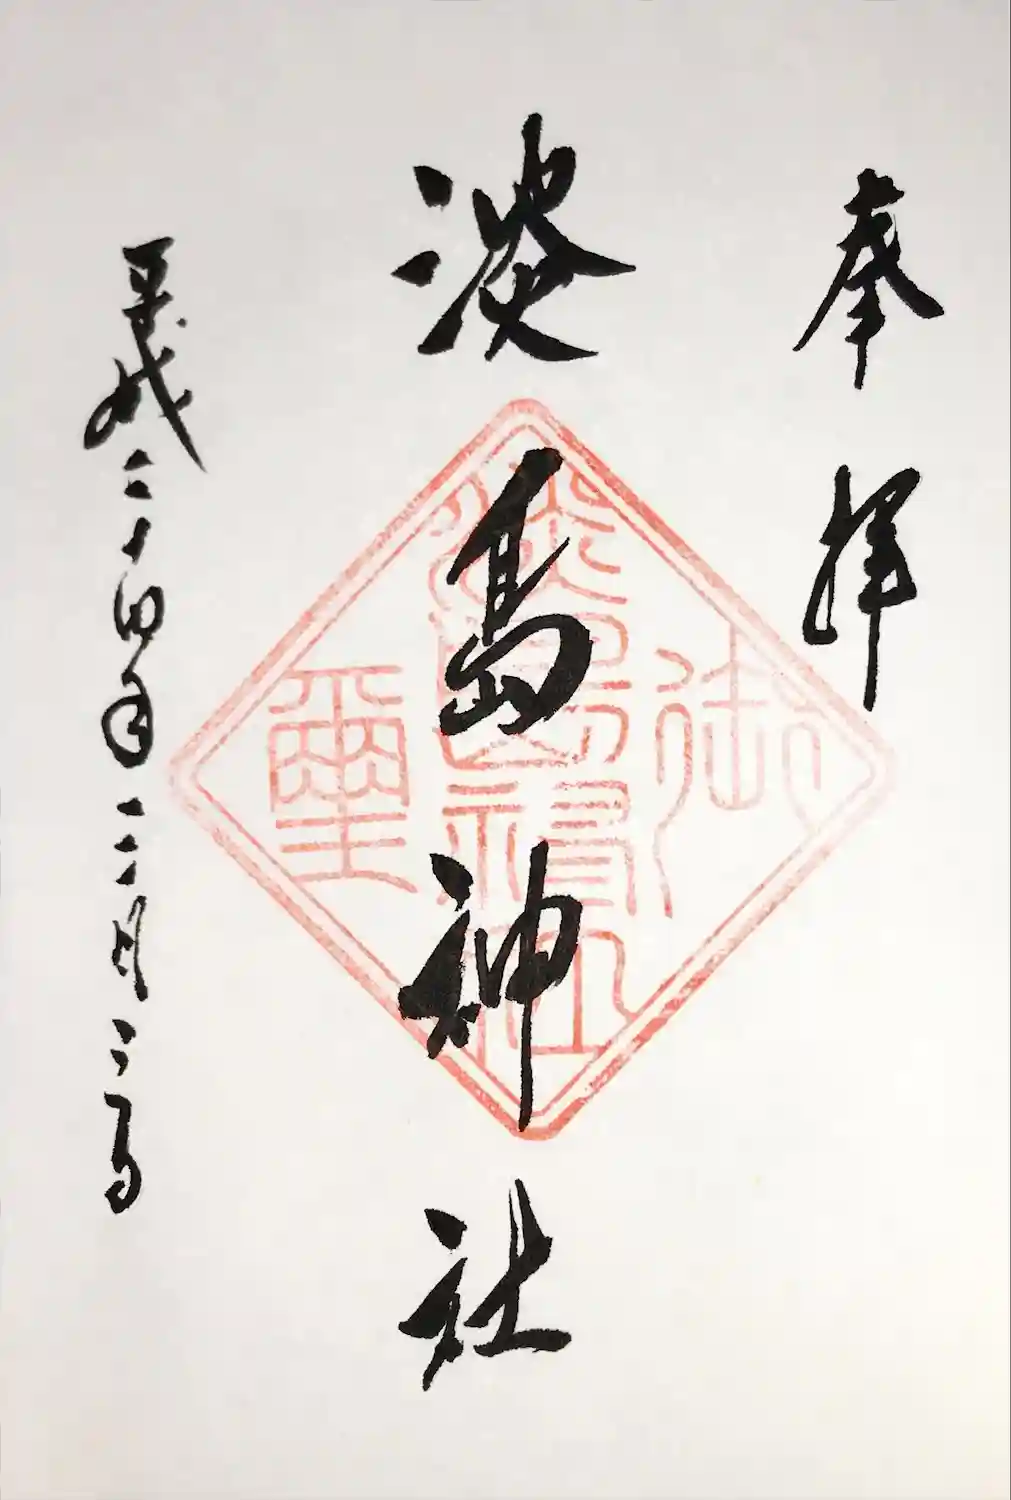 奉拝
淡島神社
平成二十四年三月二日
御
淡嶋神社
璽